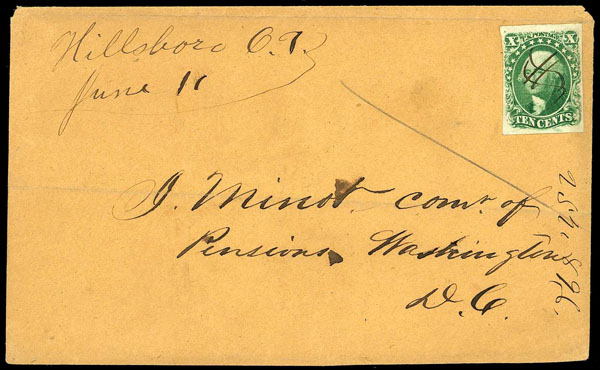 Hillsboro O.T.
June 11
X U.S. POSTAGE X
TEN CENTS
J. Minot com.r of
Pensions, Washington
D.C.